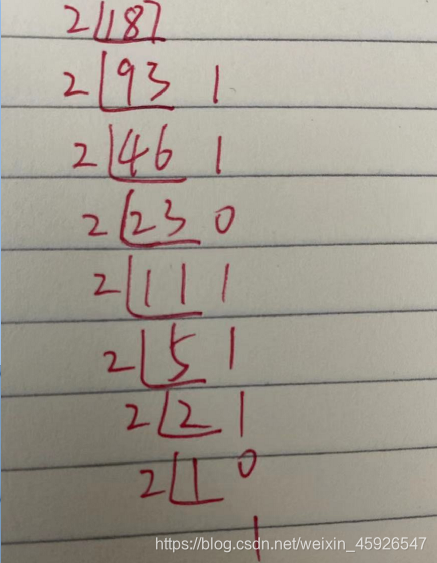 2 187
2 93 1
2 46 1
2 23 0
2 11 1
2 5 1
2 2 1
2 1 0
1
https://blog.csdn.net/weixin_45926547